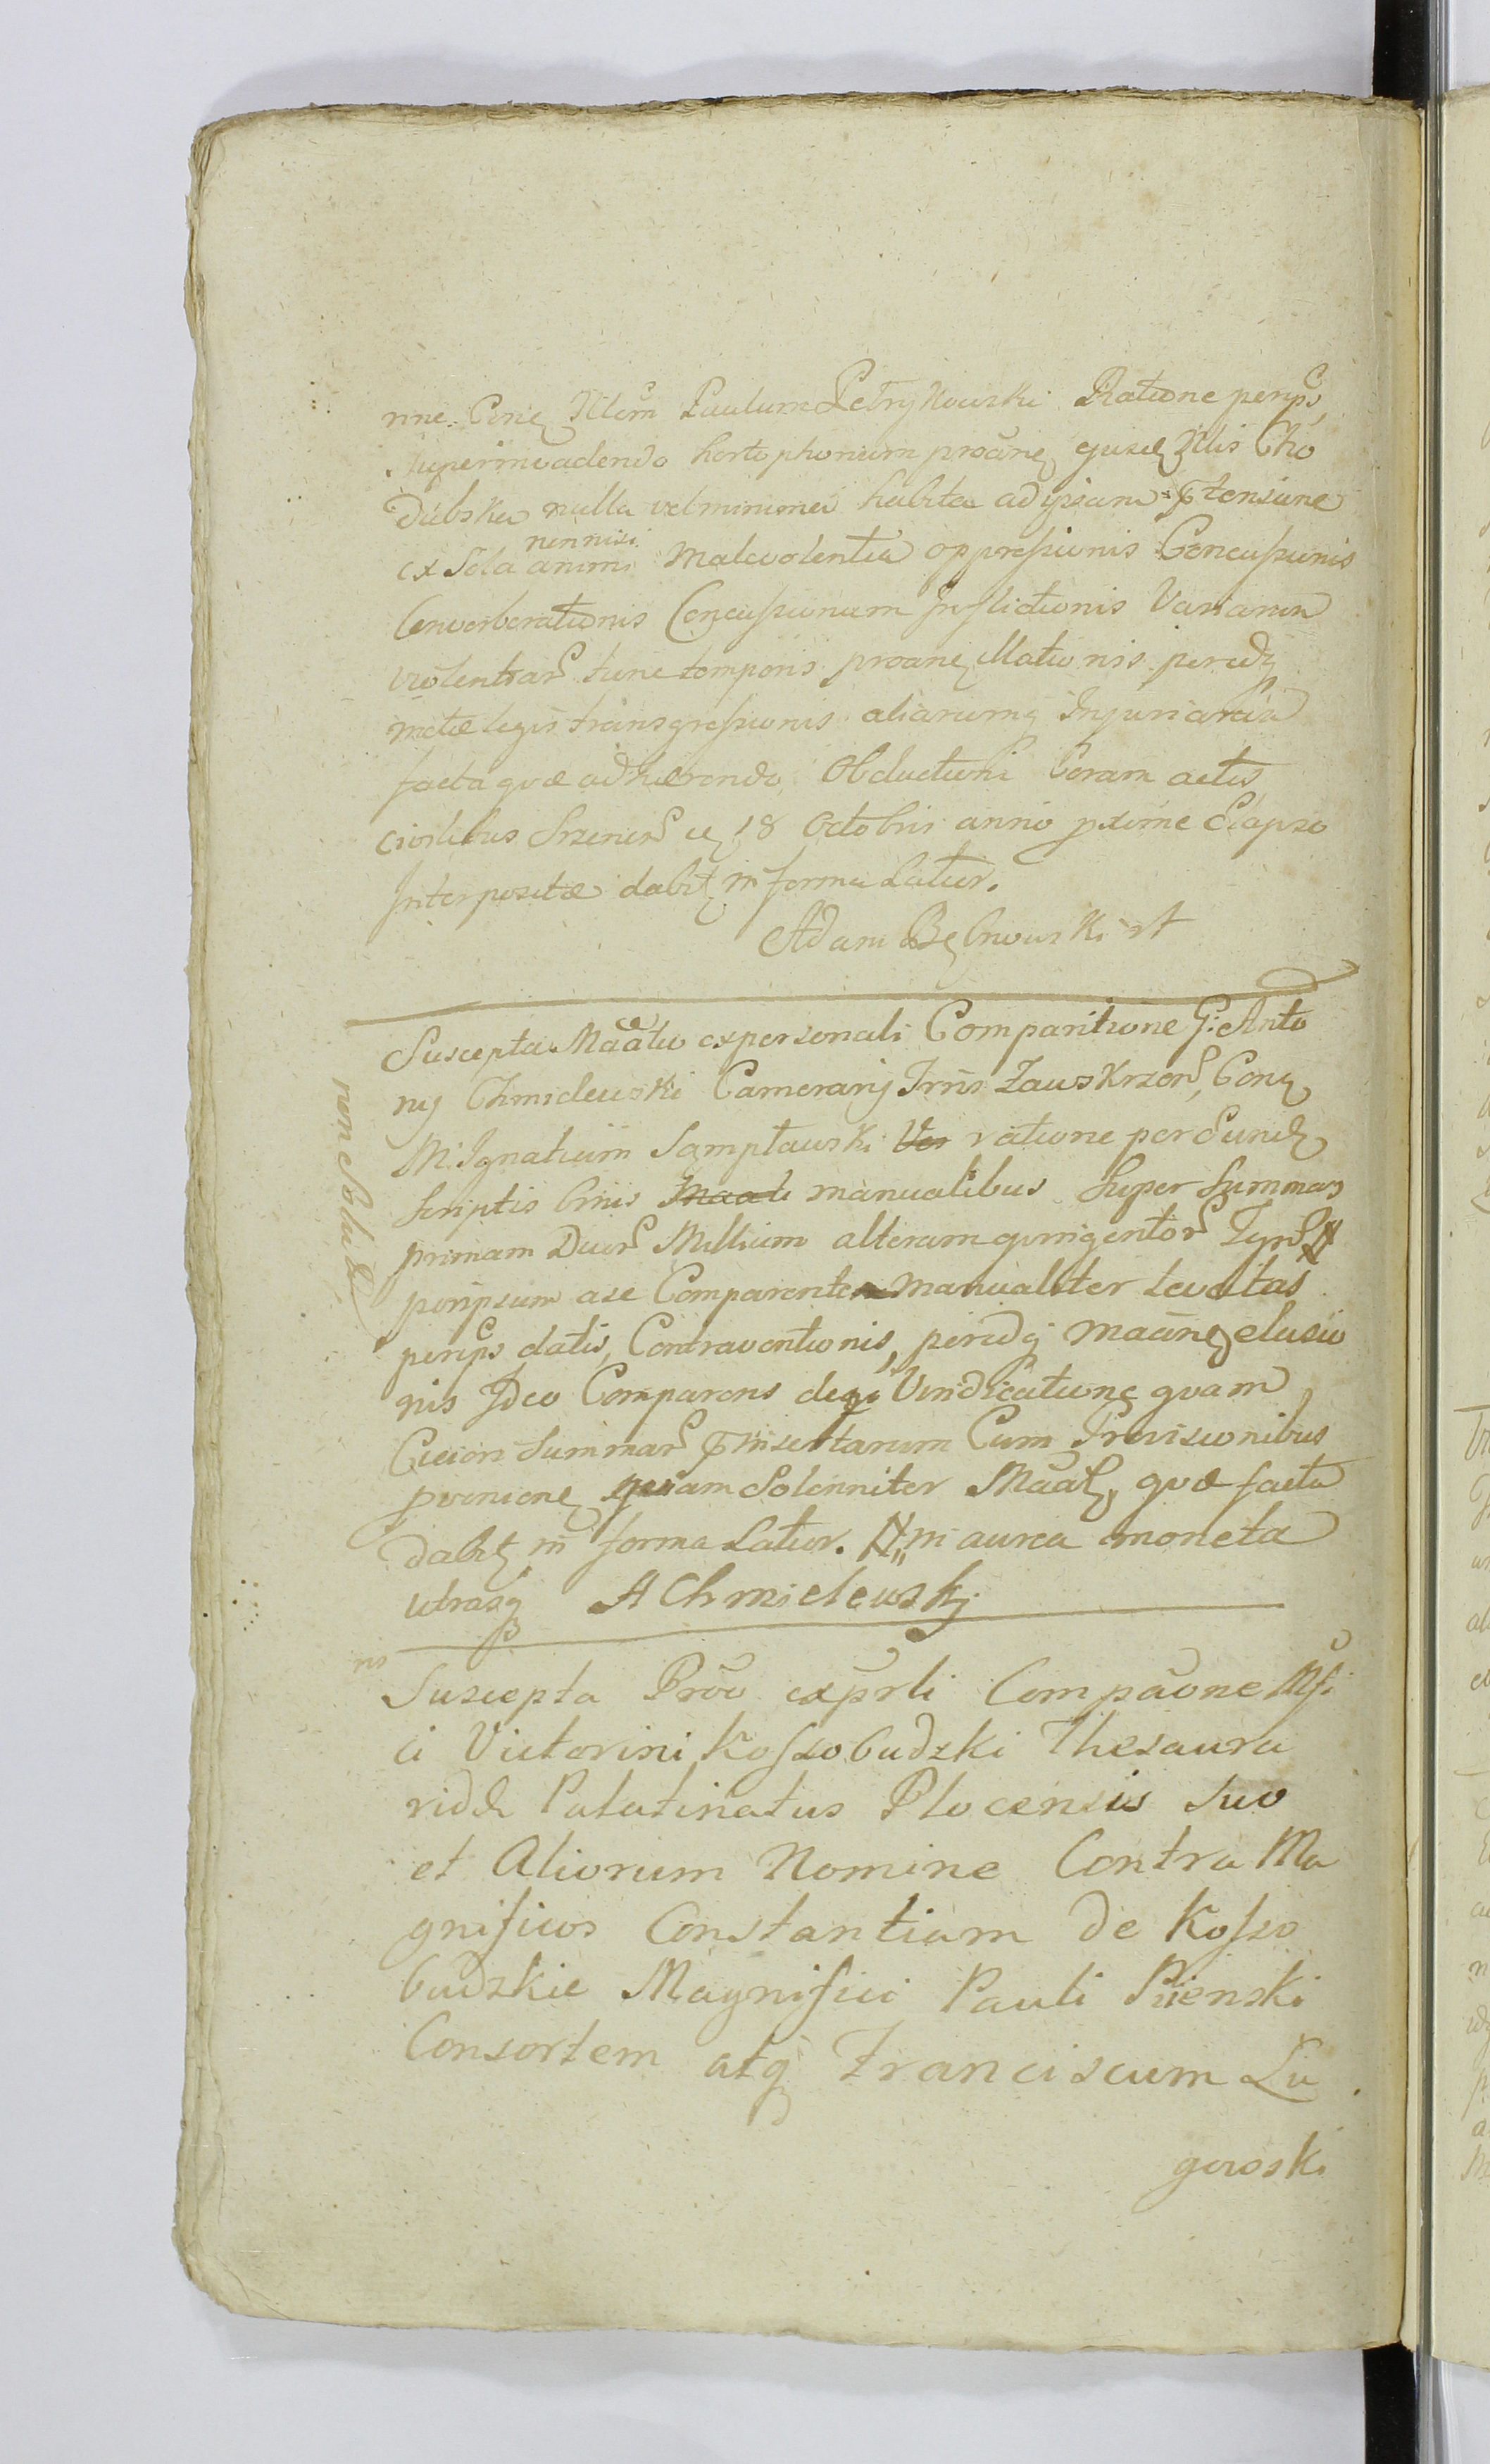 nne. Cone Nlem Paulum Petrykowski Ratione per ips
Superinvadendo hortophonium proane ejusd Nlis Cho
dubska nulla vel minima habita ad ipsam ptensione
nonnisi
ex Sola animi Malevolentia oppressionis Concussionis
Converberationis Concussionum Inflictionis Variarum
violentiar tunc temporis proane llationis peridq
metae legis transgressionis aliarumq Injuriarum
facta quae adhaerendo, Obductioni Coram actis
civilibus Srzenen 18 Octobris anno pxime Elapso
Interpositae dabit in forma Latior.
Adam Bębnowski
Suscepta Maatio ex personali Comparitione G: Anto
nij Chmielewski Camerarij Trris Zawskrzen, Cong
M. Ignatium Sampławski Ver ratione per Eund
Scriptis binis Maat manualibus Super Summas
primam Duor Millium alteram quingentor Tynf #
per ipsum a se Comparente manualiter levatas
per ips datis, Contraventionis, peridq maane elusio
nis Ideo Comparens de Vindicatione quam
Ction Summar pinsertarum Cum Provisionibus
provenien quam Solenniter Maat, quae facta
dabit in forma Latior. # in aurea moneta
utrasq A Chmielewskj
non Solut
ns
Suscepta Prōo ex prli Compāone Mfi
ci Victorini Kossobudzki Thesaura
rid Palatinatus Plocensis Suo
et Aliorum Nomine Contra Ma
gnificos Constantiam de Kosso
budzkie Magnifici Pauli Pienski
Consortem atq Franciscum Lu
gowski